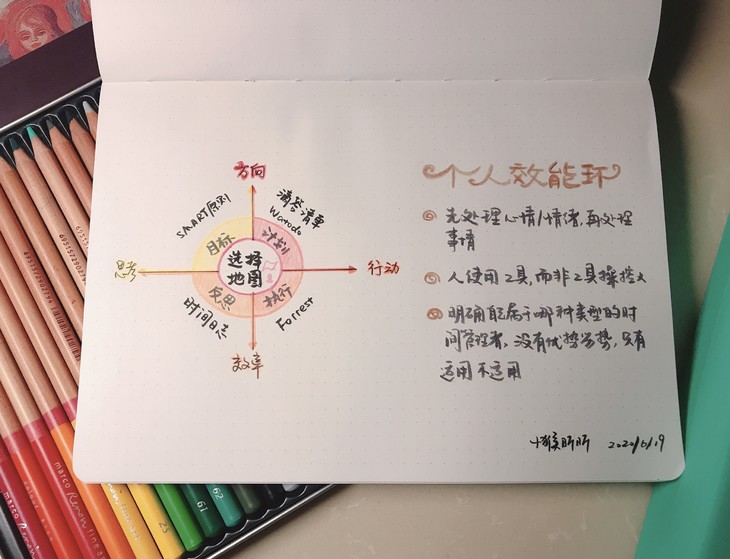 个人效能环
先处理心情/情绪,再处理
事情
人使用工具,而非工具操控人
明确自己属于哪种类型的时
间管理者,没有优势劣势,只有
适用不适用
2020/6/19
方向
SMART原则
滴答清单
Wordo
目标
计划
思考
选择
地图
行动
反思
执行
时间日志
Forrest
效率
marco
marco Renoir
61
62
23